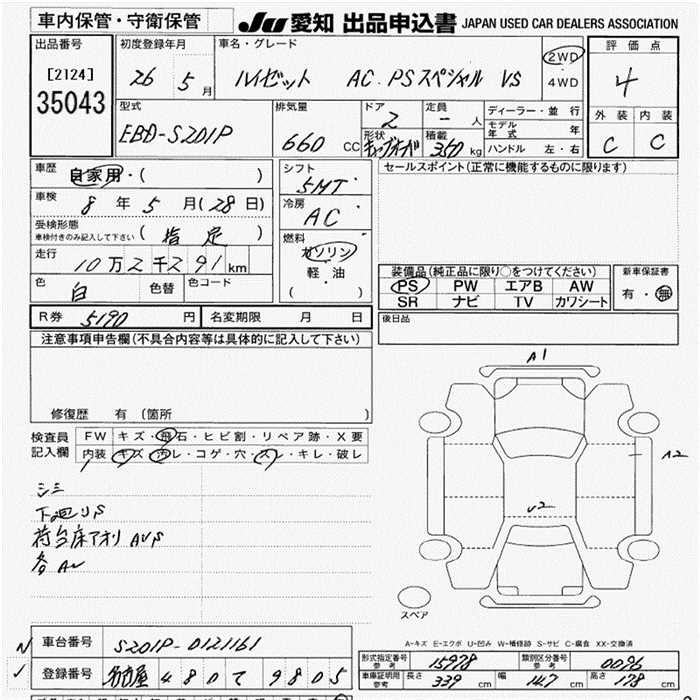 車内保管・守衛保管
JU 愛知 出品申込書 JAPAN USED CAR DEALERS ASSOCIATION
出品番号
[2124]
35043
初度登録年月
26 5月
車名・グレード
ハイゼット AC.PSスペシャル VS
2WD
・
4WD
評価点
4
外装 内装
C C
型式
EBD-S201P
排気量
660 CC
ドア
2
定員
ー 人
形状
積載
350 kg
ディーラー・並行
モデル年式 年
ハンドル 左・右
車歴
自家用・( )
車検
8年5月(28日)
受検形態
車検付きのみ記入して下さい ( 指定 )
走行
10万2千291km
色
白
色替
色コード
シフト
5MT
冷房
AC
燃料
ガソリン
軽・油
( )
セールスポイント(正常に機能するものに限ります)
装備品(純正品に限り○をつけてください)
PS PW エアB AW
SR ナビ TV カワシート
新車保証書
有・無
R券 5190 円 名変期限 月 日
後日品
注意事項申告欄(不具合内容等は具体的に記入して下さい)
修復歴 有(箇所 )
検査員記入欄
FW キズ・飛石・ヒビ割・リペア跡・X要
内装 キズ・汚レ・コゲ・穴・スレ・キレ・破レ
シミ
下廻りS
荷台床アオリ AUS
各AU
A1
A2
U2
スペア
A-キズ E-エクボ U-凹み W-補修跡 S-サビ C-腐食 XX-交換済
車台番号 S201P-0121161
登録番号 名古屋 480 て 9805
形式指定番号 参考 15978
類別区分番号 参考 0096
車庫証明用 参考 長さ 339 cm 幅 147 cm 高さ 178 cm